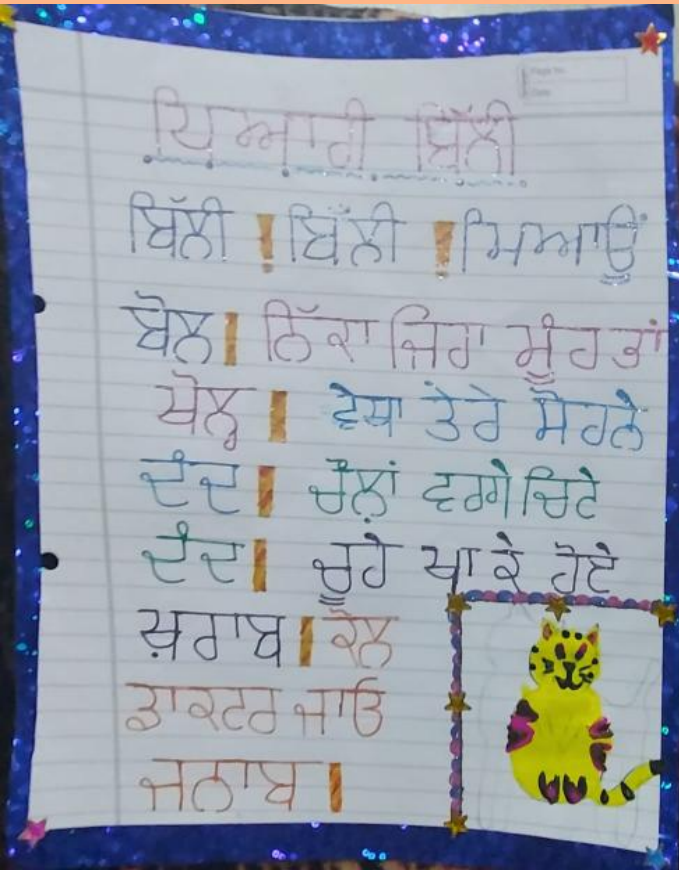 ਪਿਆਰੀ ਬਿੱਲੀ
ਬਿੱਲੀ ! ਬਿੱਲੀ ! ਮਿਆਊਂ
ਬੋਲ। ਨਿੱਕਾ ਜਿਹਾ ਮੂੰਹ ਤਾਂ
ਖੋਲ੍ਹ। ਵੇਖਾ ਤੇਰੇ ਸੋਹਣੇ
ਦੰਦ। ਚੌਲਾਂ ਵਰਗੇ ਚਿਟੇ
ਦੰਦ। ਚੂਹੇ ਖਾ ਕੇ ਹੋਏ
ਖ਼ਰਾਬ। ਕੋਲ
ਡਾਕਟਰ ਜਾਓ
ਜਨਾਬ।